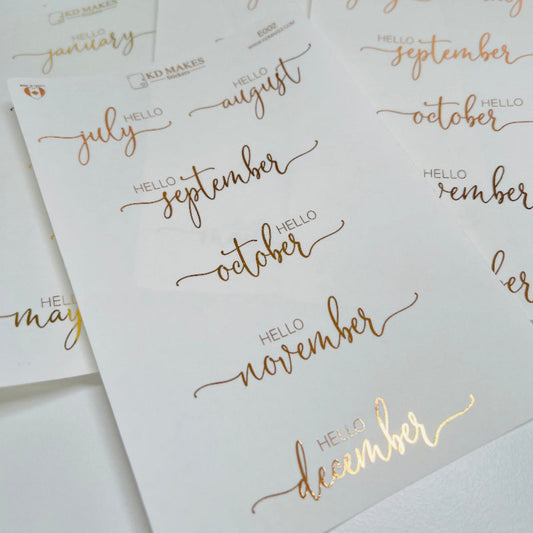 KD MAKES
HELLO
january
KD MAKES
stickers
E002
HELLO
july
HELLO
august
HELLO
september
HELLO
october
HELLO
november
HELLO
december
HELLO
may
HELLO
september
HELLO
october
HELLO
vember
ember